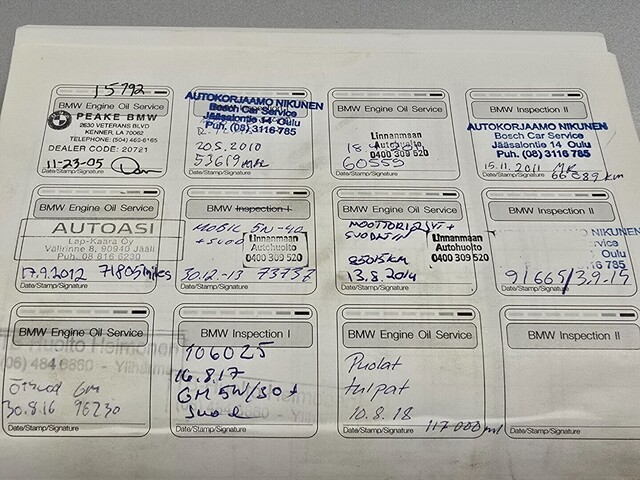 15792
BMW Engine Oil Service
PEAKE BMW
2630 VETERANS BLVD
KENNER, LA 70062
TELEPHONE: (504) 469-6165
DEALER CODE: 20721
11-23-05
Date/Stamp/Signature
AUTOKORJAAMO NIKUNEN
Bosch Car Service
Jääsalontie 14 Oulu
Puh. (08) 3116 785
20.5.2010
53619
Date/Stamp/Signature
BMW Engine Oil Service
Linnanmaan
Autohuolto
0400 309 520
18
60555
Date/Stamp/Signature
BMW Inspection II
AUTOKORJAAMO NIKUNEN
Bosch Car Service
Jääsalontie 14 Oulu
Puh. (08) 3116 785
15.11.2011
66889 km
Date/Stamp/Signature
BMW Engine Oil Service
AUTOASI
Lap-Kaara Oy
Välirinne 8, 90940 Jääli
Puh. 08 816 6230
17.9.2012 71805 miles
Date/Stamp/Signature
BMW Inspection I
MOBIL 5W-40
+ SUOD
Linnanmaan
Autohuolto
0400 309 520
30.12-13 73737
Date/Stamp/Signature
BMW Engine Oil Service
MOOTTORIÖLJYT +
SUODATIN
Linnanmaan
Autohuolto
0400 309 520
13.8.2014
Date/Stamp/Signature
BMW Inspection II
NIKUNEN
Service
Oulu
785
91665/3.9-15
Date/Stamp/Signature
BMW Engine Oil Service
Huolto Heimonen
(06) 484 6860 - Ylihärmä
GM
30.8.16 96230
Date/Stamp/Signature
BMW Inspection I
106025
16.8.17
GM 5W/30 +
Date/Stamp/Signature
BMW Engine Oil Service
Puolat
tulpat
10.8.18
117 000 ml
Date/Stamp/Signature
BMW Inspection II
Date/Stamp/Signature